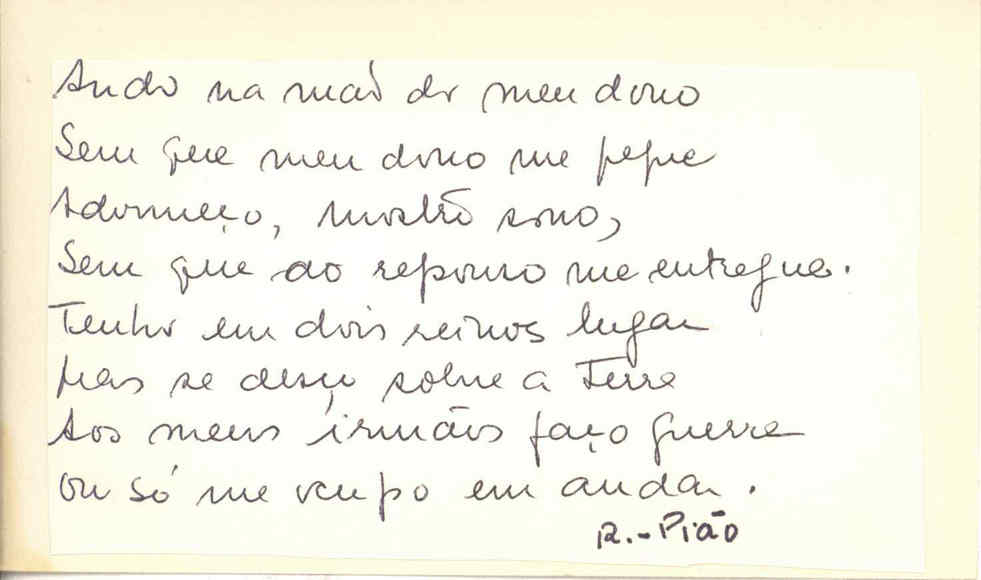 Ando na mão do meu dono
Sem que meu dono me pegue
Adormeço, mostro sono,
Sem que ao repouso me entregue.
Tenho em dois reinos lugar
Mas se desço sobre a Terra
Aos meus irmãos faço guerra
ou só me ocupo em andar.
R.-Pião